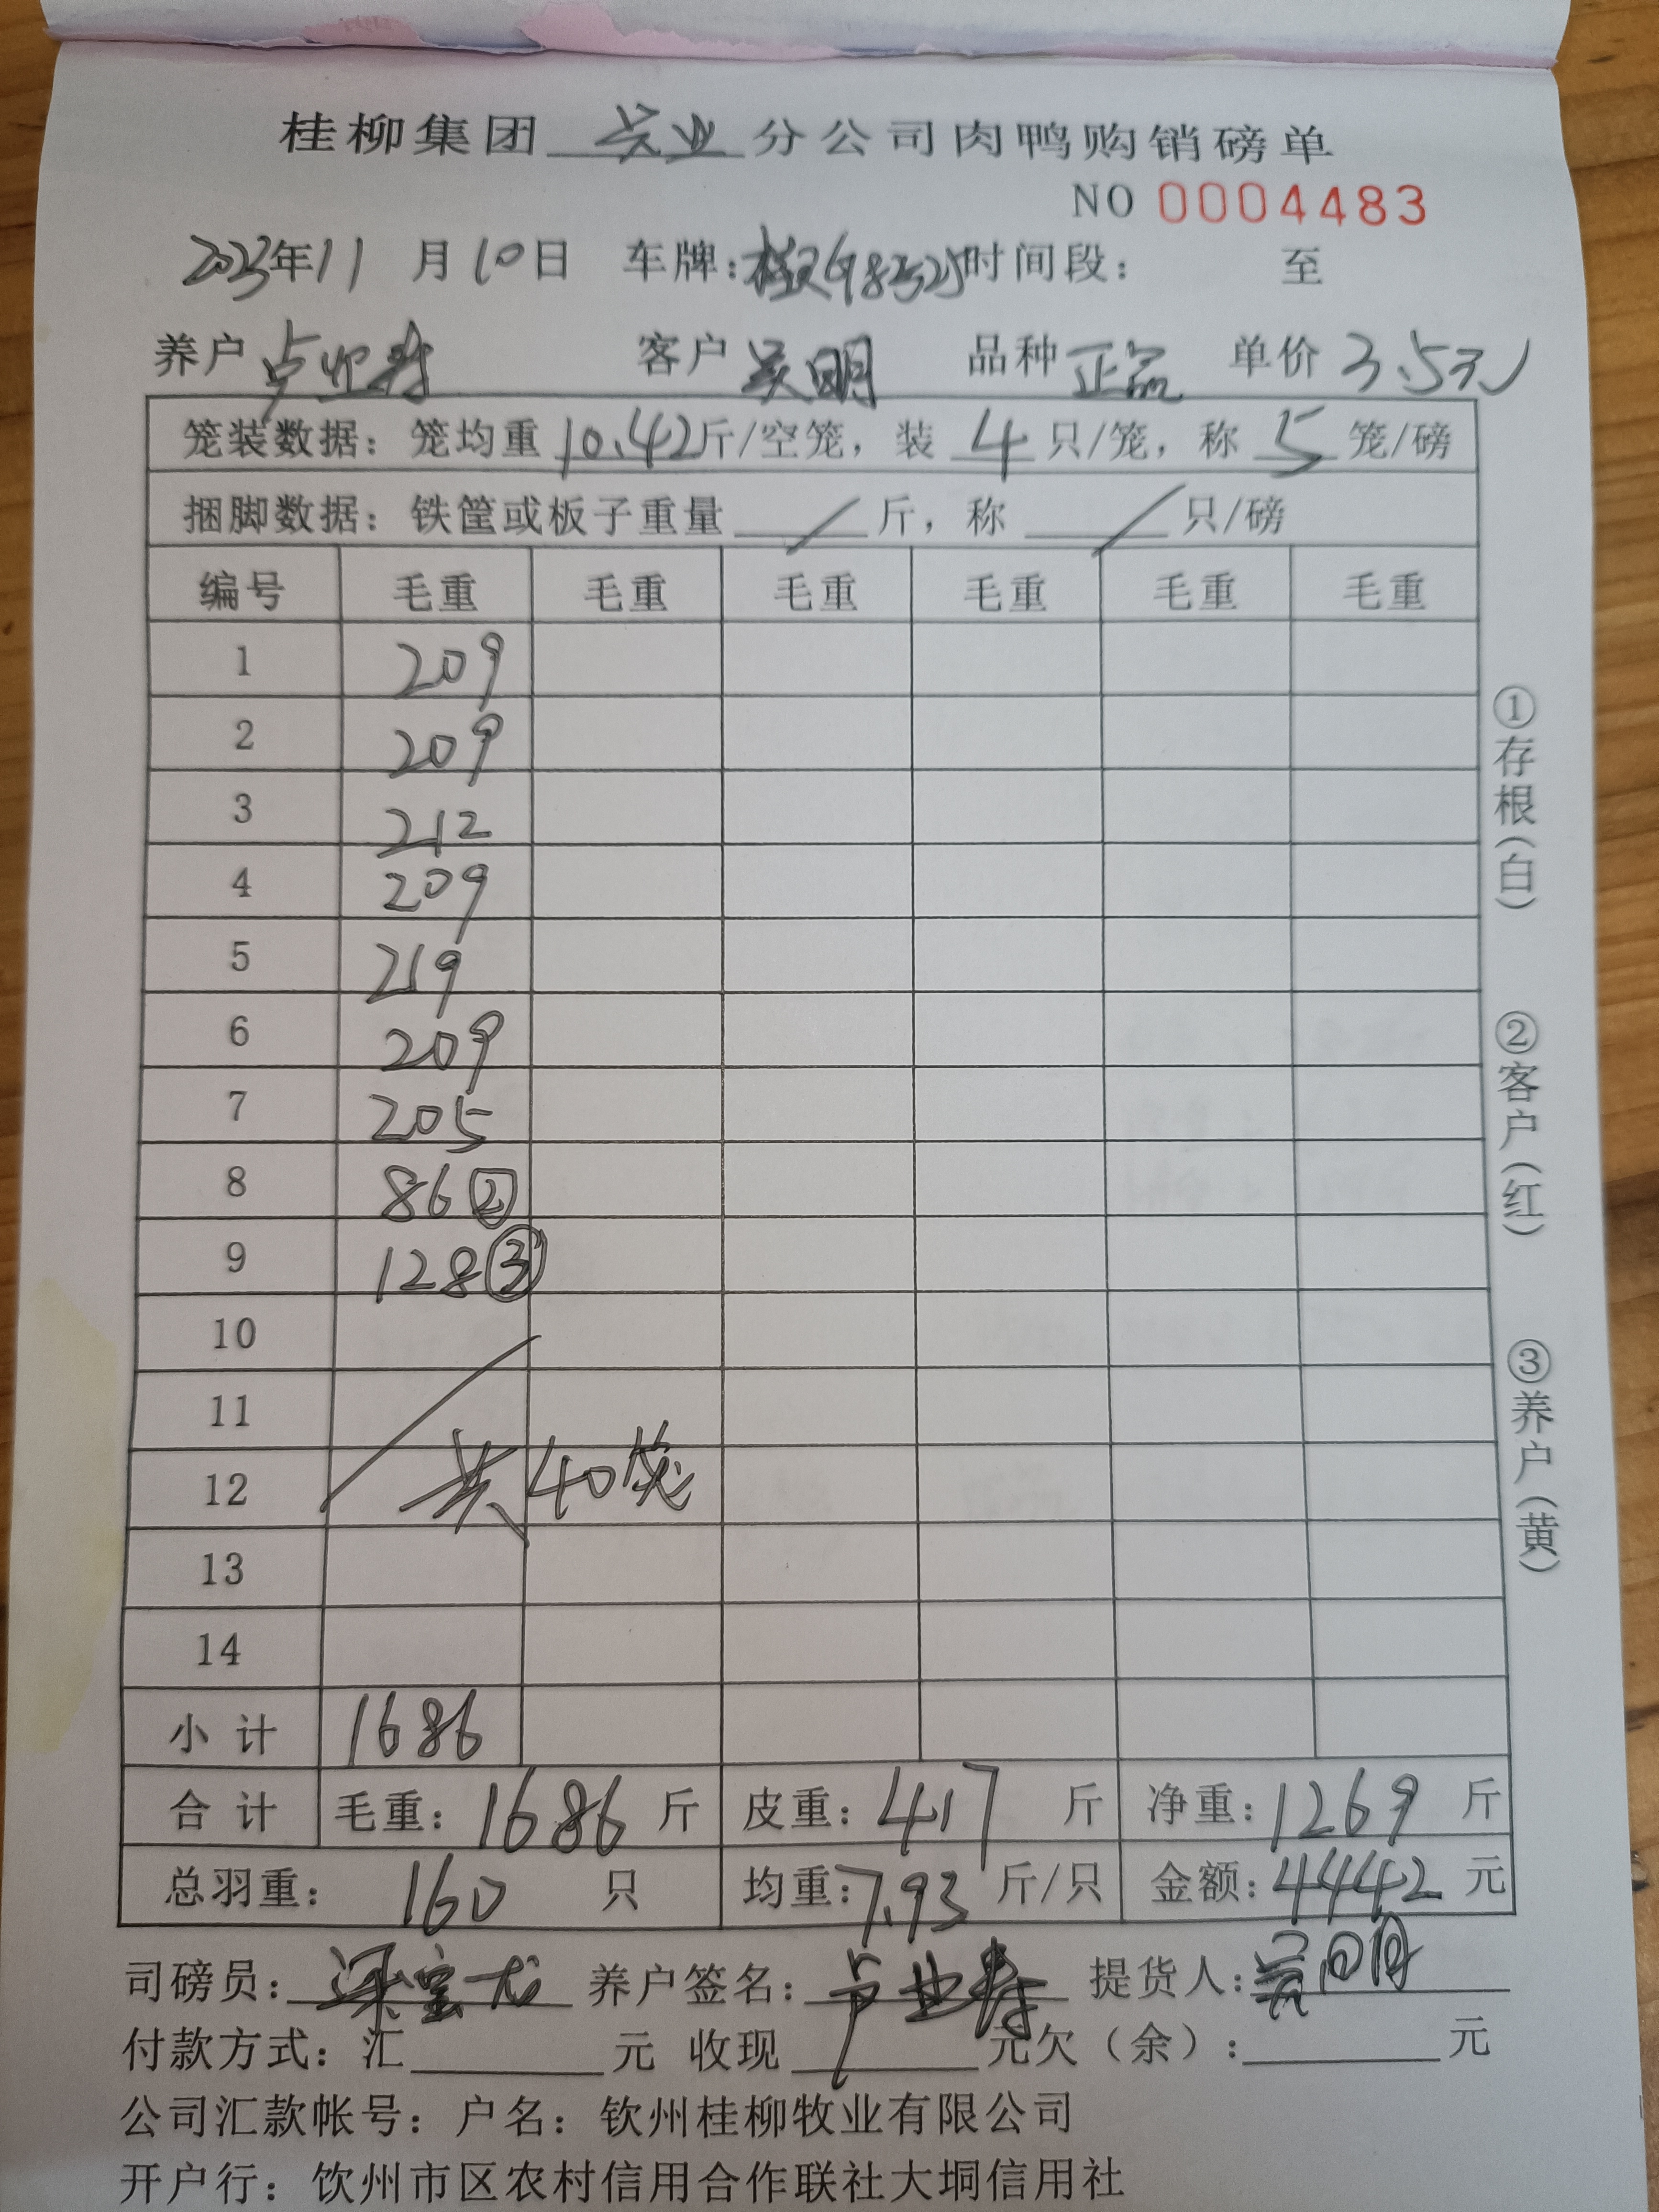 桂柳集团 兴业 分公司肉鸭购销磅单
NO 0004483
2023年11月10日 车牌: 时间段: 至
养户 卢业寿 客户 吴明 品种 正品 单价 3.5元
笼装数据: 笼均重 10.42斤/空笼, 装 4 只/笼, 称 5 笼/磅
捆脚数据: 铁筐或板子重量 / 斤, 称 / 只/磅
编号 毛重 毛重 毛重 毛重 毛重 毛重
1 209
2 209
3 212
4 209
5 219
6 209
7 205
8 86②
9 128③
10
11
12 共40笼
13
14
小计 1686
合计 毛重: 1686 斤 皮重: 417 斤 净重: 1269 斤
总羽重: 160 只 均重: 7.93 斤/只 金额: 4442 元
司磅员: 梁宝龙 养户签名: 卢业寿 提货人: 吴明
付款方式: 汇 元 收现 元欠(余): 元
公司汇款帐号: 户名: 钦州桂柳牧业有限公司
开户行: 饮州市区农村信用合作联社大垌信用社
①存根(白)
②客户(红)
③养户(黄)